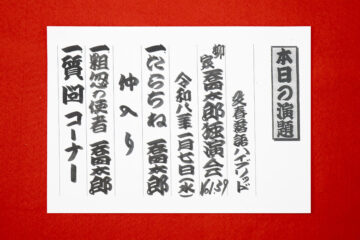 本日の演題
文春落語ハイブリッド
柳家喬太郎独演会 vol.59
令和八年一月七日(水)
一たらちね 喬太郎
仲入り
一粗忽の使者 喬太郎
一質問コーナー